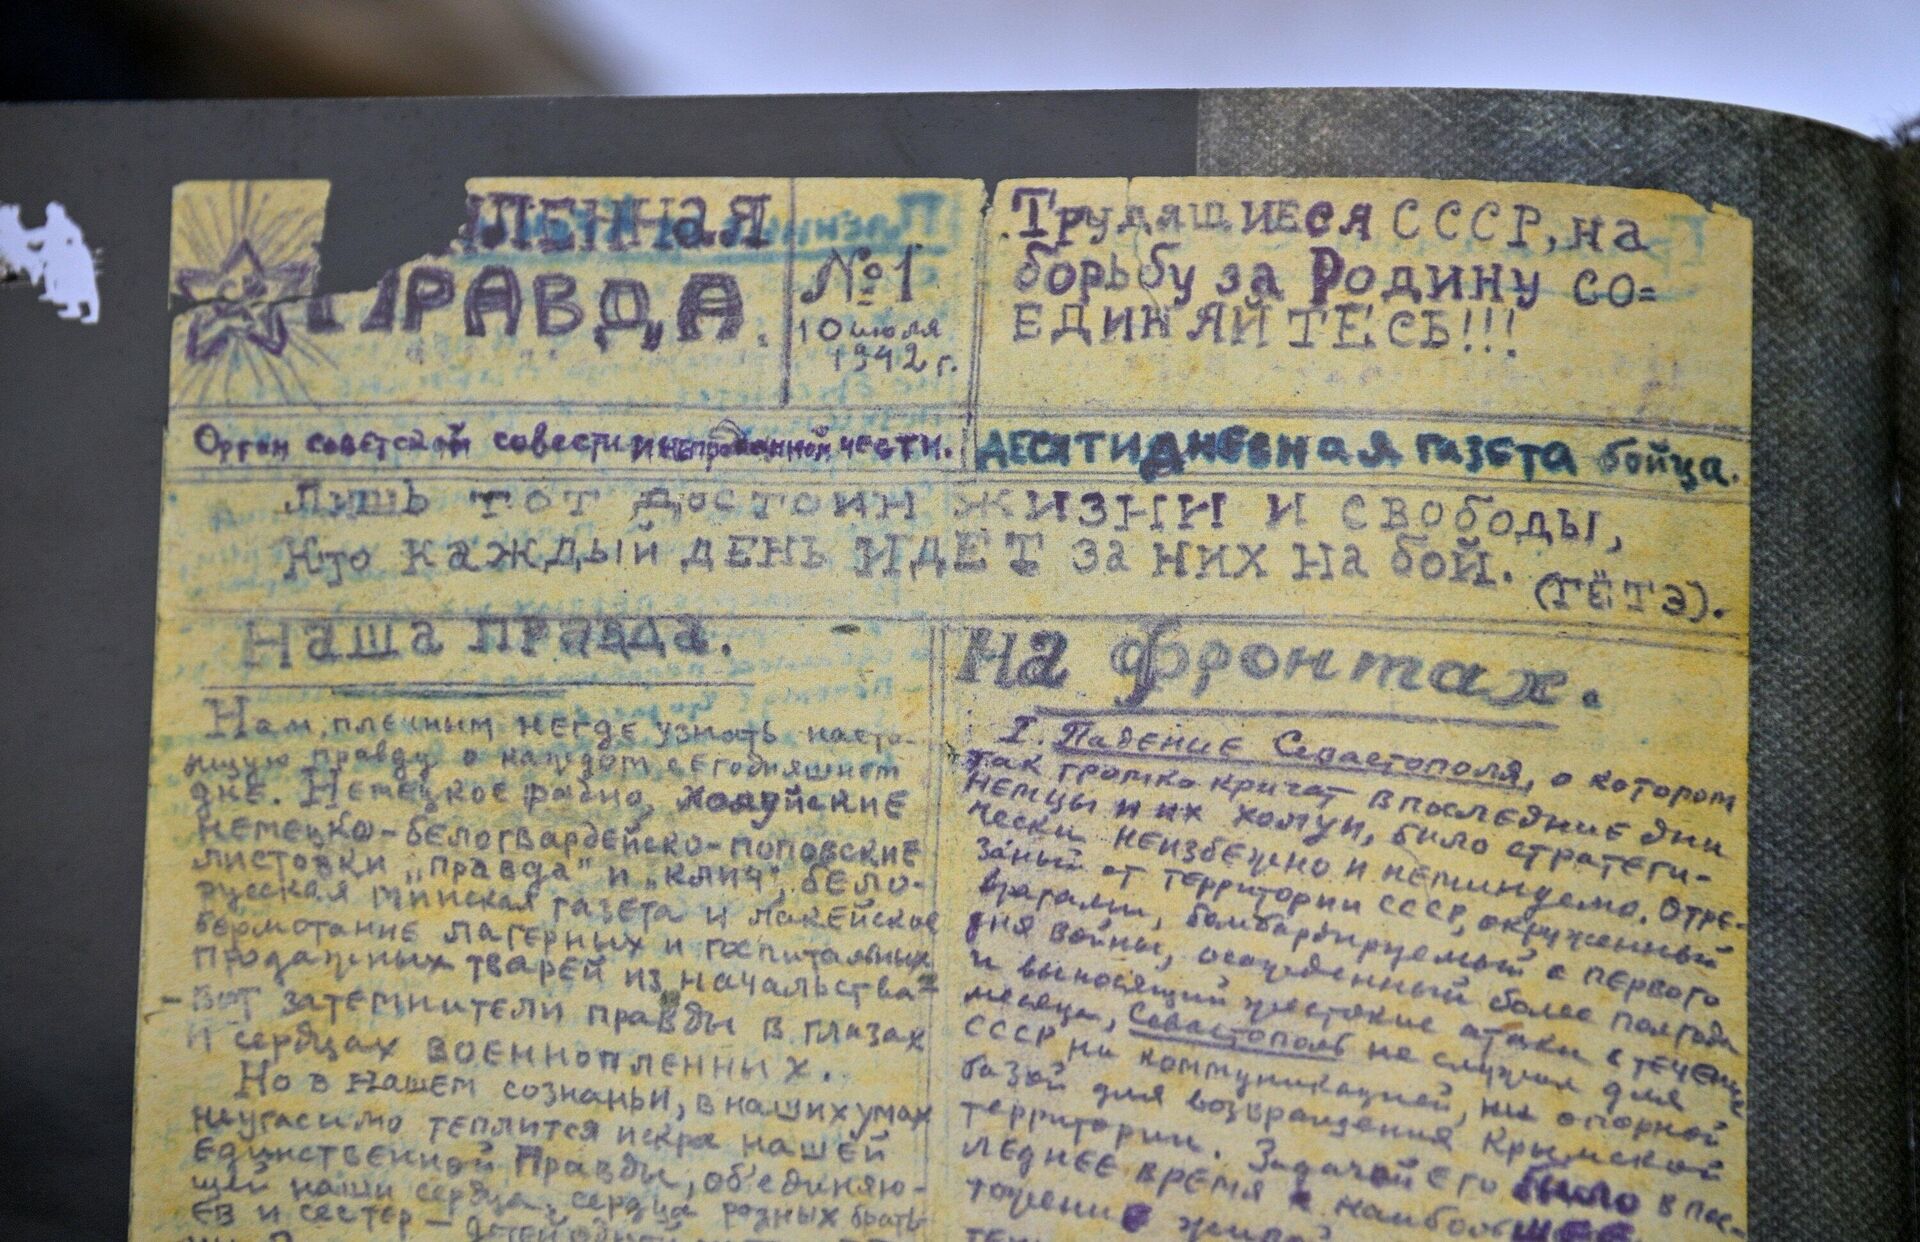 ЛЕННАЯ
ПРАВДА.
№1
10 июля
1942 г.
Трудящиеся СССР, на
борьбу за Родину со=
единяйтесь!!!
Орган советской совести и непроданной чести.
Десятидневная газета бойца.
Лишь тот достоин жизни и свободы,
Кто каждый день идет за них на бой.
(Гётэ).
Наша правда.
Нам, пленным негде узнать насто-
ящую правду о каждом сегодняшнем
дне. Немецкое радио, холуйские
немецко-белогвардейско-поповские
листовки „Правда" и „Клич", бело-
русская минская газета и лакейское
бормотание лагерных и госпитальных
продажных тварей из начальства-
-вот затемнители правды в глазах
и сердцах военнопленных.
Но в нашем сознаньи, в наших умах
неугасимо теплится искра нашей
единственной Правды, об'единяю-
щей наши сердца, сердца родных брать
ев и сестер -
На фронтах.
I. Падение Севастополя, о котором
так громко кричат в последние дни
немцы и их холуи, было стратеги-
чески неизбежно и неминуемо. Отре-
заный от территории СССР, окруженный
врагами, бомбардируемый с первого
дня войны, осажденный более полгода
и выносящий жестокие атаки в течение
месяца, Севастополь не служил для
СССР ни коммуникацией, ни опорной
базой для возвращения Крымской
территории. Задачей его было в пос-
леднее время наибольшее